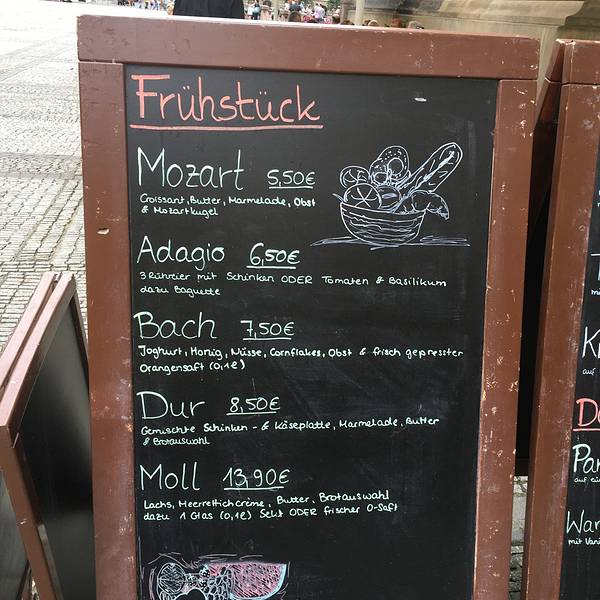 Frühstück
Mozart 5,50€
Croissant, Butter, Marmelade, Obst
& Mozartkugel
Adagio 6,50€
3 Rühreier mit Schinken ODER Tomaten & Basilikum
dazu Baguette
Bach 7,50€
Joghurt, Honig, Nüsse, Cornflakes, Obst & frisch gepresster
Orangensaft (0,1l)
Dur 8,50€
Gemischte Schinken - & Käseplatte, Marmelade, Butter
& Brotauswahl
Moll 13,90€
Lachs, Meerrettichcrème, Butter, Brotauswahl
dazu 1 Glas (0,1l) Sekt ODER frischer O-Saft
auf
mit